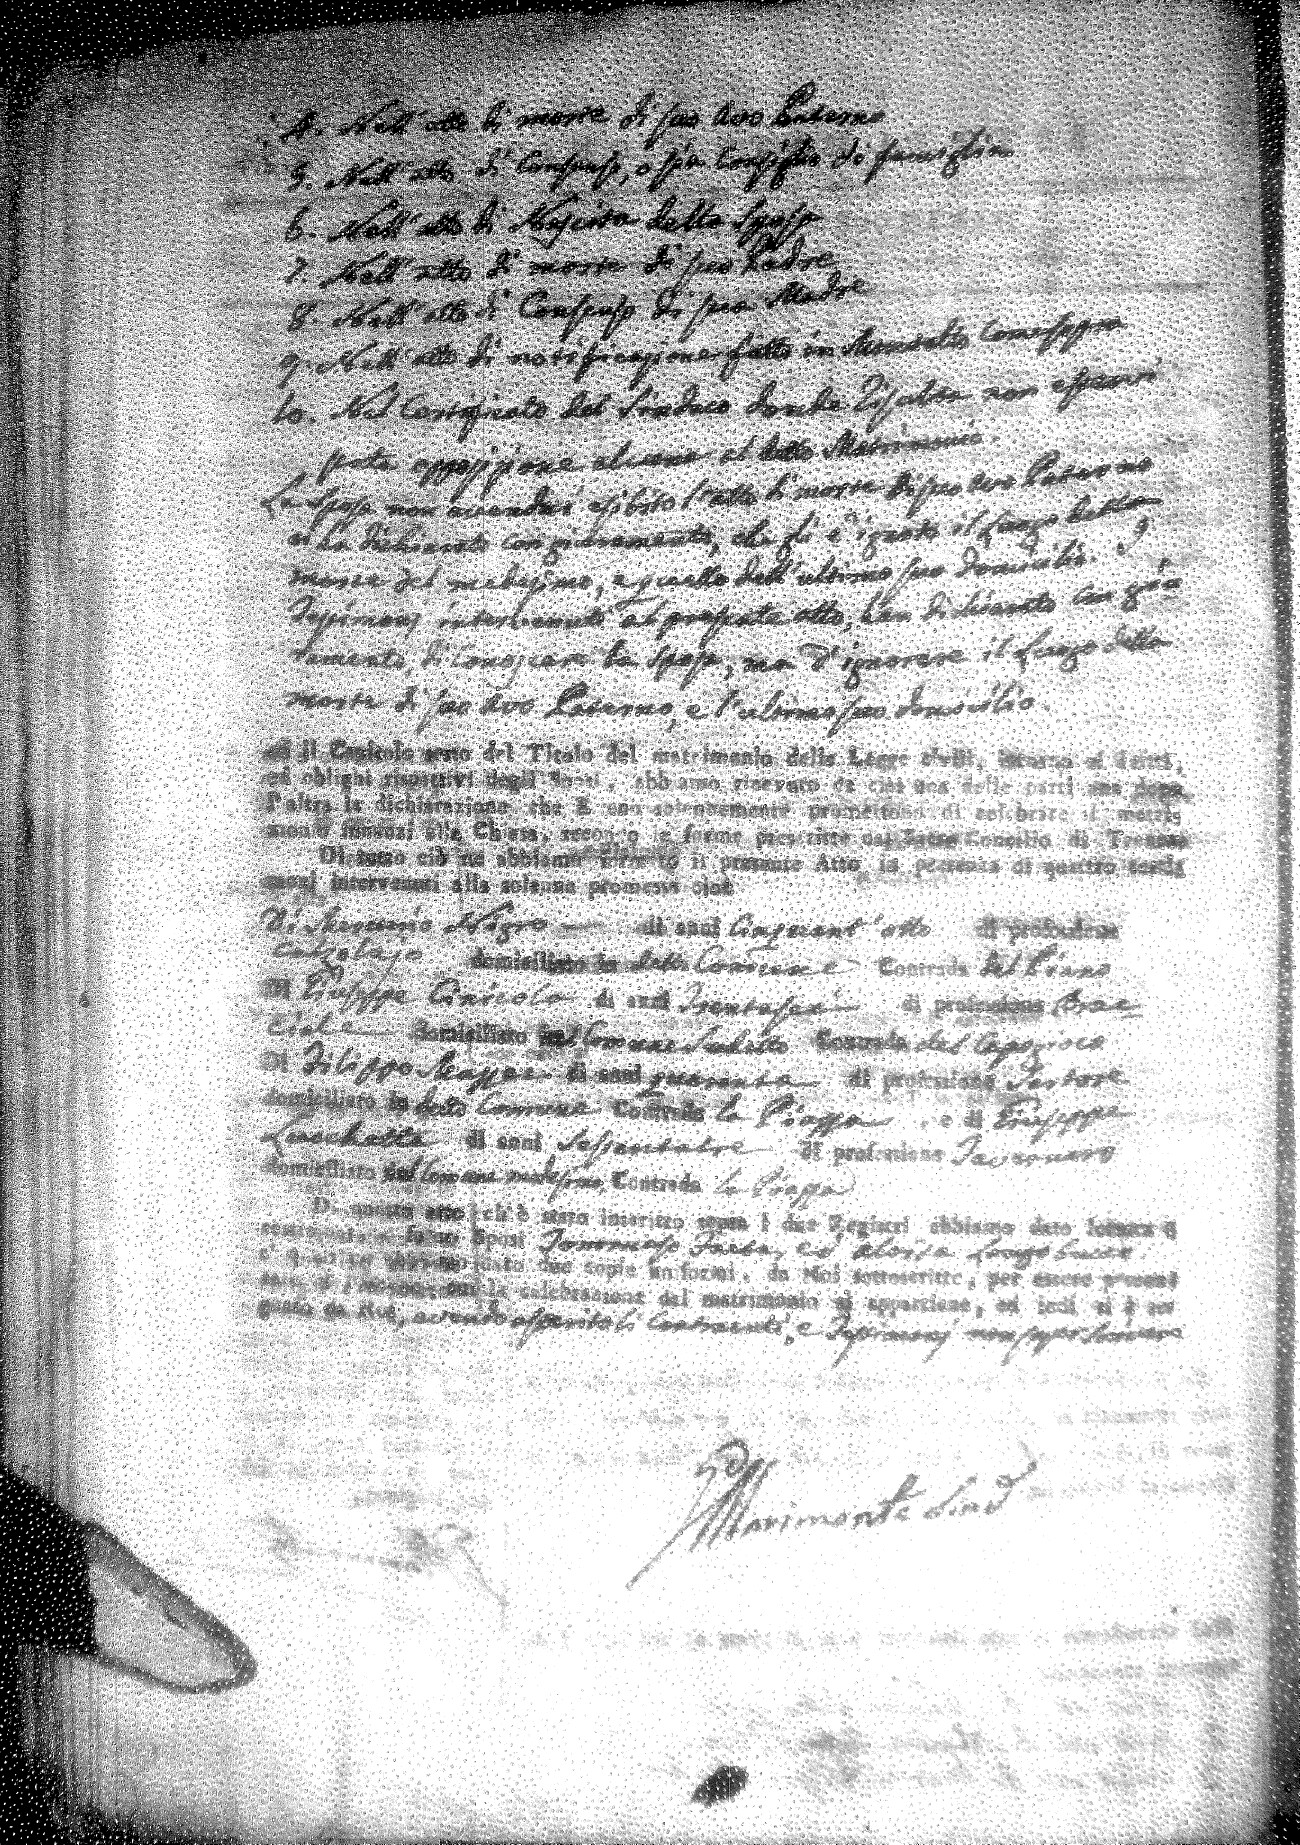 4. Nell' atto di morte di suo Avo Paterno
5. Nell' atto di Consenso, o sia Consiglio di famiglia
6. Nell' atto di Nascita della Sposa
7. Nell' atto di morte di suo Padre
8. Nell' atto di Consenso di sua Madre
9. Nell' atto di notificazione fatto in
10. Nel Certificato del Sindaco donde risulta non essersi
fatta opposizione alcuna al detto Matrimonio.
La Sposa non avendosi esibito l'atto di morte di suo Avo Paterno
ha dichiarato con giuramento, che gli è ignoto il luogo della
morte del medesimo, e quello dell' ultimo suo domicilio. I
Testimonj intervenuti al presente atto, han dichiarato con giu=
ramento, di conoscere la Sposa, ma d' ignorare il luogo della
morte di suo Avo Paterno, e l'ultimo suo domicilio.
ed il Capitolo del Titolo del matrimonio delle Legge civili, intorno ai dritti,
ed oblighi rispettivi degli Sposi, abbiamo ricevuto da ciascuna delle parti una dopo
l'altra la dichiarazione che E sso solennemente promettono di celebrare il matri
monio innanzi alla Chiesa, secondo le forme prescritte dal Sacro Concilio di Trento
Di tutto ciò ne abbiamo il presente Atto in presenza di quattro testi
monj intervenuti alla solenne promessa cioè
Di Nigro di anni Cinquant' otto di professione
calzolajo domiciliato in detto Comune Contrada del Piano
Di Giuseppe di anni Trentasei di professione Brac=
ciale domiciliato nel Comune sudetto Contrada del
Di Filippo di anni quaranta di professione Sartore
domiciliato in detto Comune Contrada la Piazza, e di Giuseppe
Lucchetta di anni Sessantatre di professione Tavernaro
domiciliato nel Comune medesimo, Contrada la Piazza
Di questo atto ch'è stato inscritto sopra i due Registri abbiamo dato lettura a
Sposi Tommaso ed Aloisa Longobucco.
due copie uniformi, da Noi sottoscritte, per essere
la celebrazione del matrimonio si appartiene, ed indi si è
da Noi, avendo asserito li Contraenti, e Testimonj non saper scrivere
Marimonte Sind